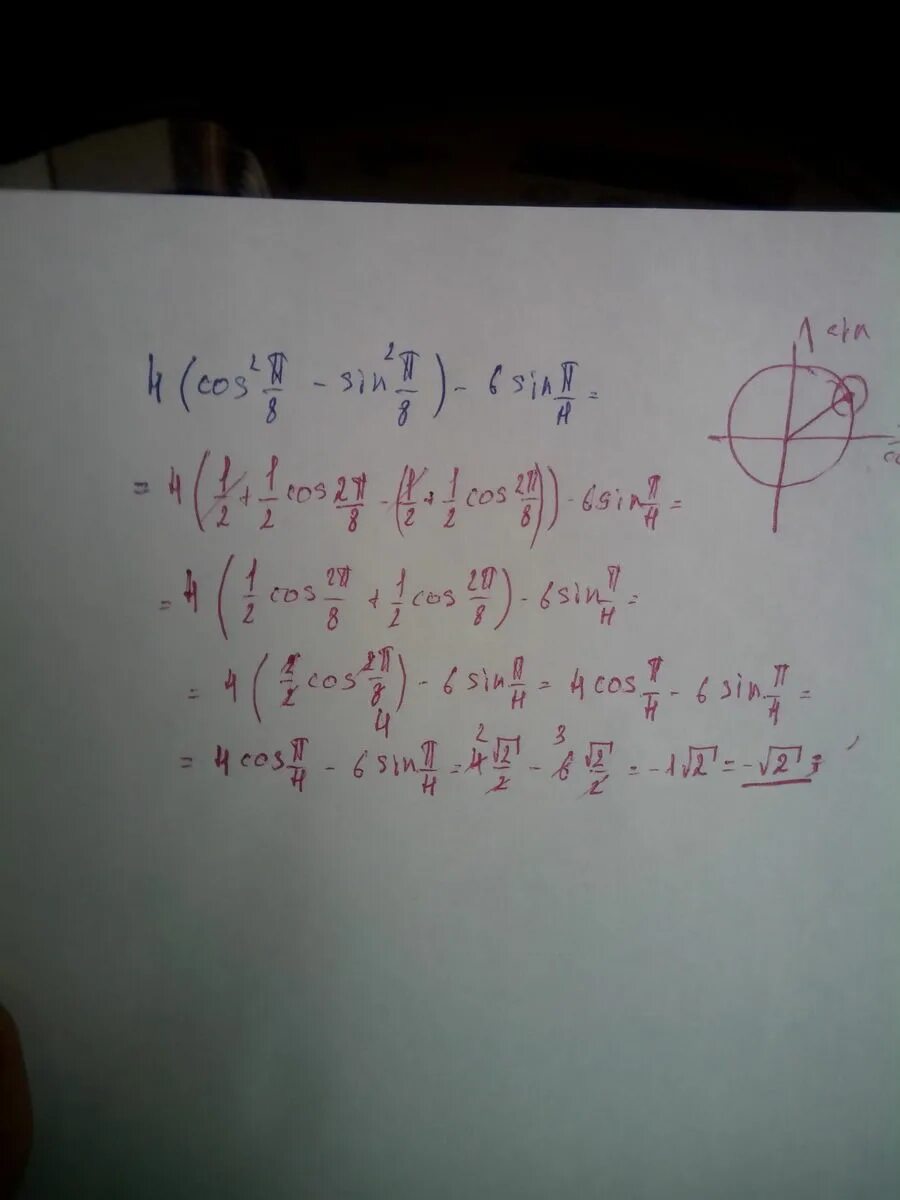 4 (cos² π/8 - sin² π/8) - 6 sin π/4 =
sin
= 4 (1/2 + 1/2 cos 2π/8 - (1/2 + 1/2 cos 2π/8)) - 6 sin π/4 =
= 4 (1/2 cos 2π/8 + 1/2 cos 2π/8) - 6 sin π/4 =
= 4 (2/2 cos 2π/8 4) - 6 sin π/4 = 4 cos π/4 - 6 sin π/4 =
= 4 cos π/4 - 6 sin π/4 = 4 2 √2/2 - 6 3 √2/2 = -1√2 = -√2